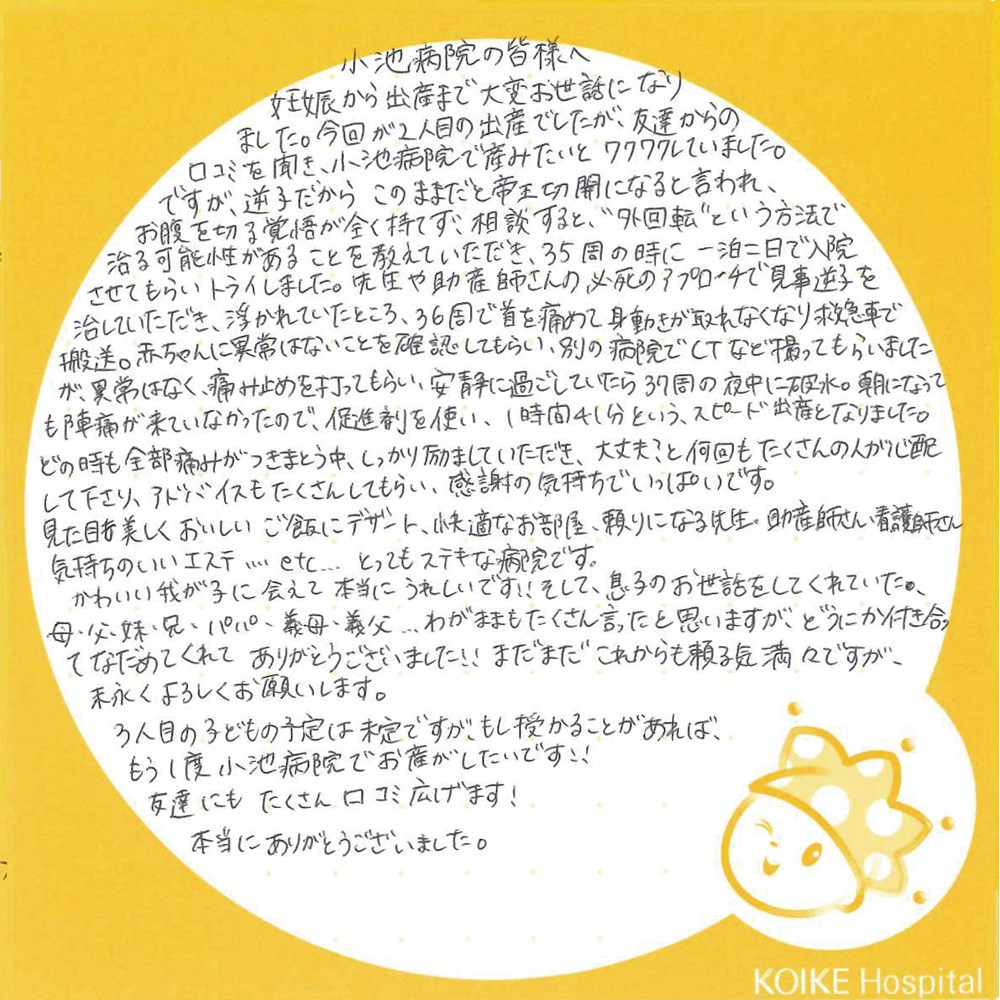 小池病院の皆様へ
妊娠から出産まで大変お世話になり
ました。今回が2人目の出産でしたが、友達からの
口コミを聞き、小池病院で産みたいとワクワクしていました。
ですが、逆子だから このままだと帝王切開になると言われ、
お腹を切る覚悟が全く持てず、相談すると、"外回転"という方法で
治る可能性があることを教えていただき、35周の時に一泊二日で入院
させてもらいトライしました。先生や助産師さんの必死のアプローチで見事逆子を
治していただき、浮かれていたところ、36周で首を痛めて身動きが取れなくなり救急車で
搬送。赤ちゃんに異常はないことを確認してもらい、別の病院でCTなど撮ってもらいました
が、異常はなく、痛み止めを打ってもらい、安静に過ごしていたら37周の夜中に破水。朝になって
も陣痛が来ていなかったので、促進剤を使い、1時間41分という、スピード出産となりました。
どの時も全部痛みがつきまとう中、しっかり励ましていただき、大丈夫?と何回もたくさんの人が心配
して下さり、アドバイスもたくさんしてもらい、感謝の気持ちでいっぱいです。
見た目も美しくおいしいご飯にデザート、快適なお部屋、頼りになる先生、助産師さん、看護師さん
気持ちのいいエステ....etc... とってもステキな病院です。
かわいい我が子に会えて本当にうれしいです!!そして、息子のお世話をしてくれていた。、
母・父・妹・兄・パパ・義母・義父...わがままもたくさん言ったと思いますが、どうにか付き合っ
てなだめてくれて ありがとうございました!!まだまだこれからも頼る気満々ですが、
末永くよろしくお願いします。
3人目の子どもの予定は未定ですが、もし授かることがあれば、
もう1度小池病院でお産がしたいです!!
友達にもたくさん口コミ広げます!
本当にありがとうございました。
KOIKE Hospital